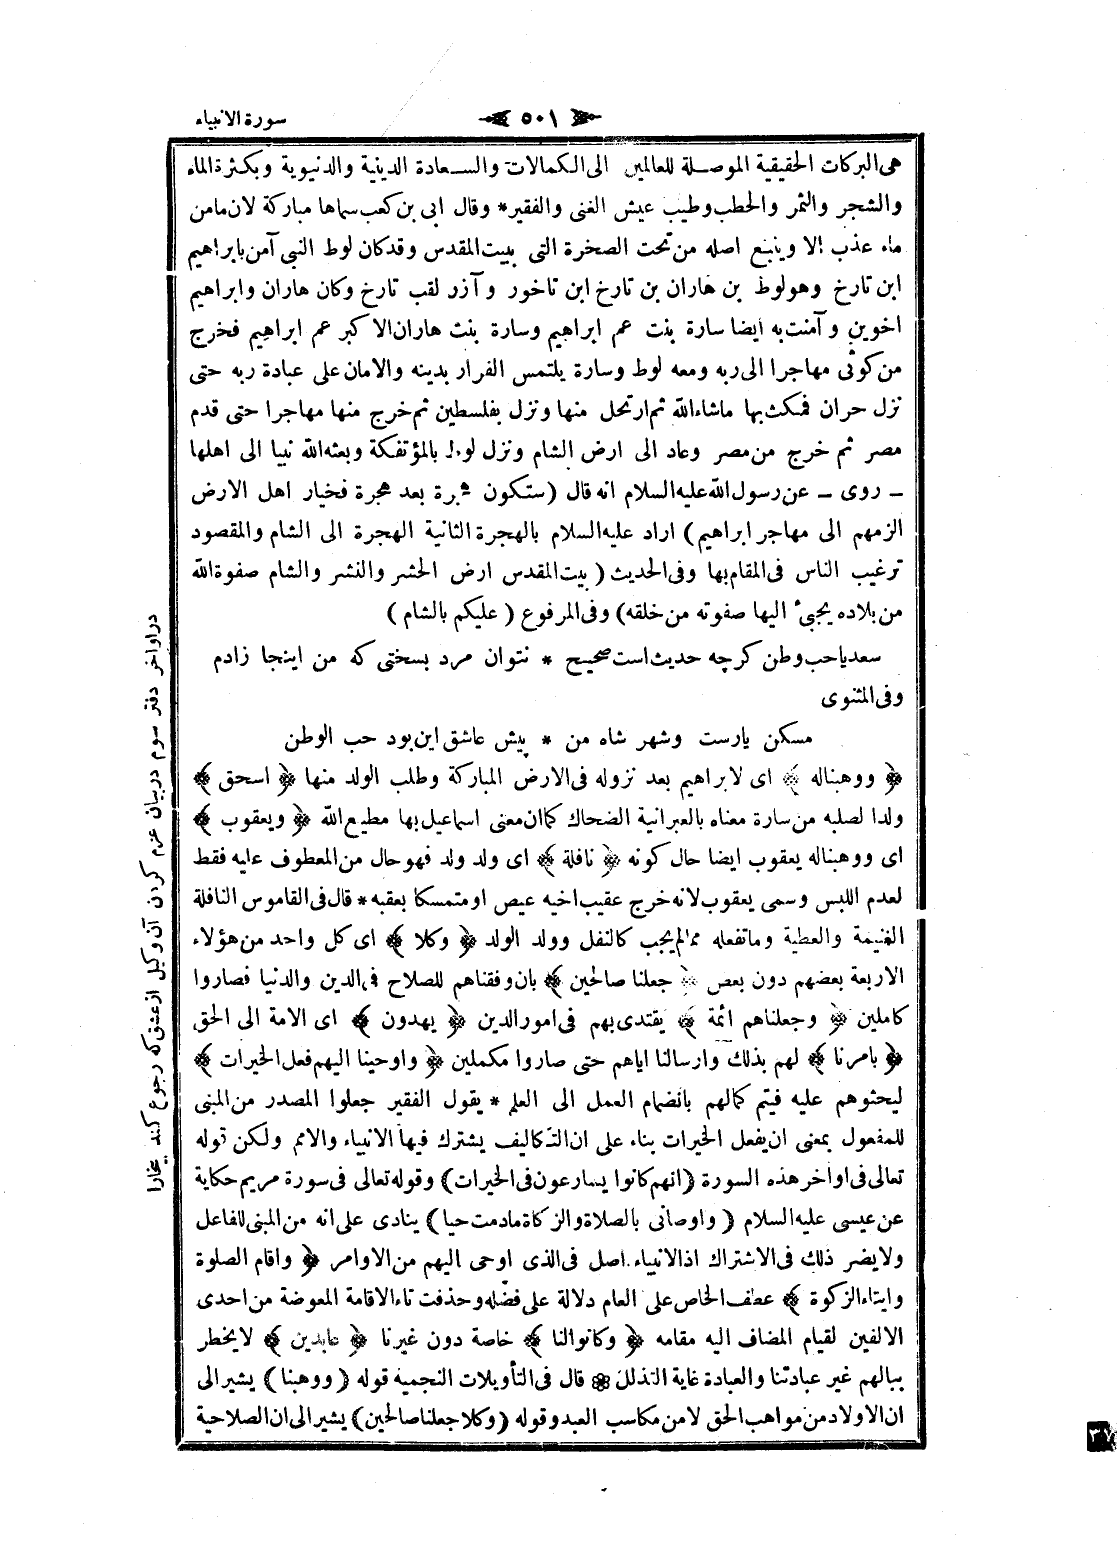 سورة الانبياء
٥٠١
هى البركات الحقيقية الموصلة للعالمين الى الكمالات والسعادة الدينية والدنيوية وبكثرة الماء
والشجر والثمر والحطب وطيب عيش الغنى والفقير * وقال ابى بن كعب سماها مباركة لان ما من
ماء عذب الا وينبع اصله من تحت الصخرة التى ببيت المقدس وقد كان لوط النبى آمن بابراهيم
ابن تارخ وهو لوط بن هاران بن تارخ ابن تاخور وآزر لقب تارخ وكان هاران وابراهيم
اخوين وآمنت به ايضا سارة بنت عم ابراهيم وسارة بنت هاران الاكبر عم ابراهيم فخرج
من كوثى مهاجرا الى ربه ومعه لوط وسارة يلتمس الفرار بدينه والامان على عبادة ربه حتى
نزل حران فمكث بها ماشاء الله ثم ارتحل منها ونزل بفلسطين ثم خرج منها مهاجرا حتى قدم
مصر ثم خرج من مصر وعاد الى ارض الشام ونزل لوط بالمؤتفكة وبعثه الله نبيا الى اهلها
ـ روى ـ عن رسول الله عليه السلام انه قال (ستكون هجرة بعد هجرة فخيار اهل الارض
الزمهم الى مهاجر ابراهيم) اراد عليه السلام بالهجرة الثانية الهجرة الى الشام والمقصود
ترغيب الناس فى المقام بها وفى الحديث (بيت المقدس ارض الحشر والنشر والشام صفوة الله
من بلاده يجبىء اليها صفوته من خلقه) وفى المرفوع (عليكم بالشام)
سعديا حب وطن كرچه حديث است صحيح * نتوان مرد بسختى كه من اينجا زادم
وفى المثنوى
مسكن يارست وشهر شاه من * پيش عاشق اين بود حب الوطن
﴿ ووهبنا له ﴾ اى لابراهيم بعد نزوله فى الارض المباركة وطلب الولد منها ﴿ اسحق ﴾
ولدا لصلبه من سارة معناه بالعبرانية الضحاك كما ان معنى اسماعيل بها مطيع الله ﴿ ويعقوب ﴾
اى ووهبنا له يعقوب ايضا حال كونه ﴿ نافلة ﴾ اى ولد ولد فهو حال من المعطوف عليه فقط
لعدم اللبس وسمى يعقوب لانه خرج عقيب اخيه عيص او متمسكا بعقبه * قال فى القاموس النافلة
الغنيمة والعطية وما تفعله مما لم يجب كالنفل وولد الولد ﴿ وكلا ﴾ اى كل واحد من هؤلاء
الاربعة بعضهم دون بعض ﴿ جعلنا صالحين ﴾ بان وفقناهم للصلاح فى الدين والدنيا فصاروا
كاملين ﴿ وجعلناهم ائمة ﴾ يقتدى بهم فى امور الدين ﴿ يهدون ﴾ اى الامة الى الحق
﴿ بامرنا ﴾ لهم بذلك وارسالنا اياهم حتى صاروا مكملين ﴿ واوحينا اليهم فعل الخيرات ﴾
ليحثوهم عليه فيتم كمالهم بانضمام العمل الى العلم * يقول الفقير جعلوا المصدر من المبنى
للمفعول بمعنى ان يفعل الخيرات بناء على ان التكاليف يشترك فيها الانبياء والامم ولكن قوله
تعالى فى اواخر هذه السورة (انهم كانوا يسارعون فى الخيرات) وقوله تعالى فى سورة مريم حكاية
عن عيسى عليه السلام (واوصانى بالصلاة والزكاة مادمت حيا) ينادى على انه من المبنى للفاعل
ولا يضر ذلك فى الاشتراك اذ الانبياء اصل فى الذى اوحى اليهم من الاوامر ﴿ واقام الصلوة
وايتاء الزكوة ﴾ عطف الخاص على العام دلالة على فضله وحذفت تاء الاقامة المعوضة من احدى
الالفين لقيام المضاف اليه مقامه ﴿ وكانوا لنا ﴾ خاصة دون غيرنا ﴿ عابدين ﴾ لا يخطر
ببالهم غير عبادتنا والعبادة غاية التذلل * قال فى التأويلات النجمية قوله (ووهبنا) يشير الى
ان الاولاد من مواهب الحق لا من مكاسب العبد وقوله (وكلا جعلنا صالحين) يشير الى ان الصلاحية
در اواخر دفتر سوم در بيان عزم كردن آن وكيل از عشق كه رجوع كند ببخارا
٣٧